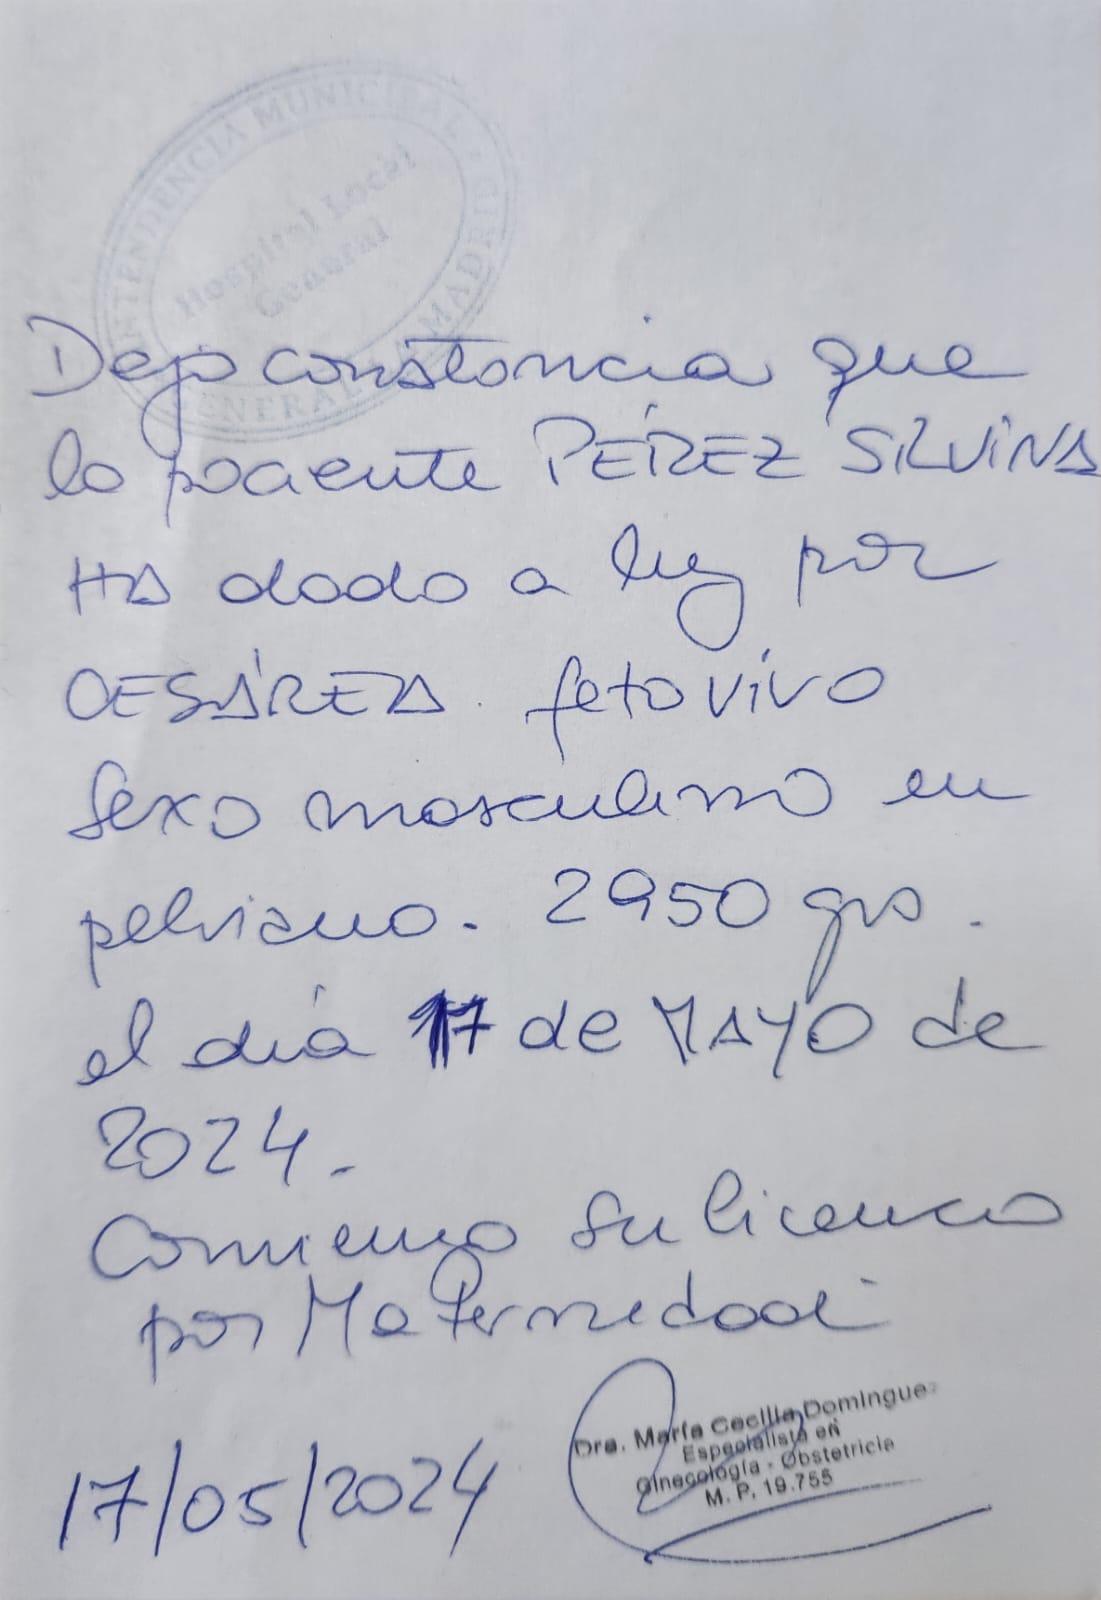 INTENDENCIA MUNICIPAL
Hospital Local
General
GENERAL LA MADRID
Dejo constancia que
la paciente PÉREZ SILVINA
HA dado a luz por
CESÁREA. feto vivo
sexo masculino en
pelviano. 2950 grs.
el día 17 de MAYO de
2024.-
Comienza su licencia
por Maternidad
17/05/2024
Dra. María Cecilia Domínguez
Especialista en
Ginecología - Obstetricia
M. P. 19.755